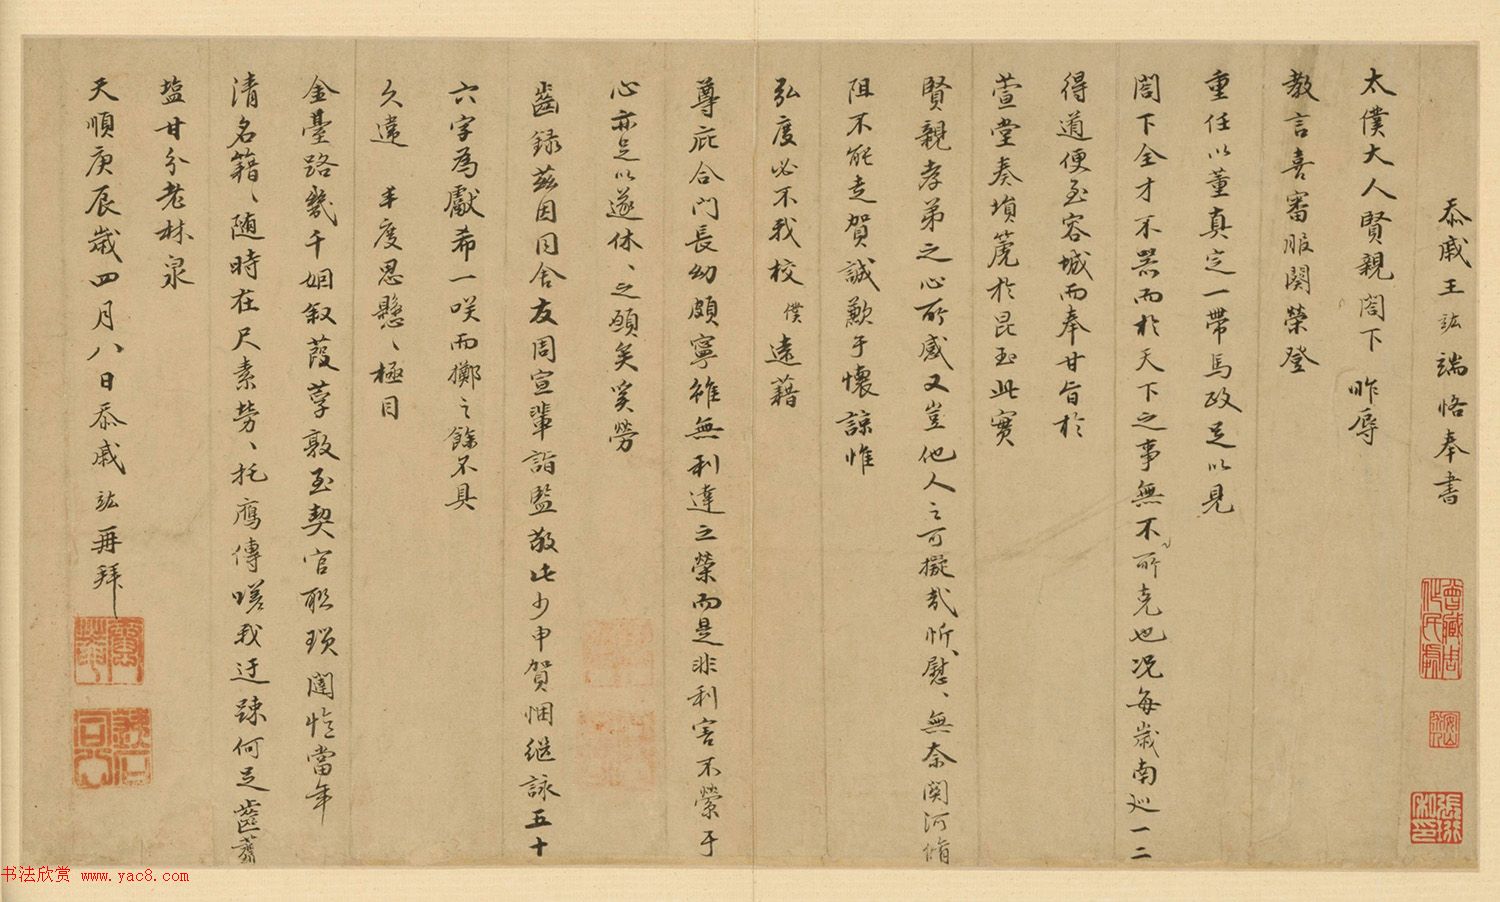 忝戚王竑端恪奉書
太僕大人賢親閤下昨辱
教言喜審服闋榮登
重任以董真定一帶馬政足以見
閤下全才不器而於天下之事無不所克也况每歲南巡一二
得道便至容城而奉甘旨於
萱堂奏塤篪於昆玉此實
賢親孝弟之心所感又豈他人之可擬哉忻慰、無奈関河脩
阻不能走賀誠歉于懷諒惟
弘度必不我校僕遠藉
尊庇合門長幼頗寧雖無利達之榮而是非利害不縈于
心亦足以遂休、之願矣奚勞
齒録茲因同舍友周宣輩詣監敬此少申賀悃継詠五十
六字為獻希一咲而擲之餘不具
久違丰度思懸、極目
金臺路幾千姻叙葭莩敦至契官聨瑣闥憶當年
清名籍、随時在尺素勞、托鴈傳嗟我迂踈何足齒薺
塩甘分老林泉
天順庚辰歲四月八日忝戚竑再拜
書法欣赏 www.yac8.com